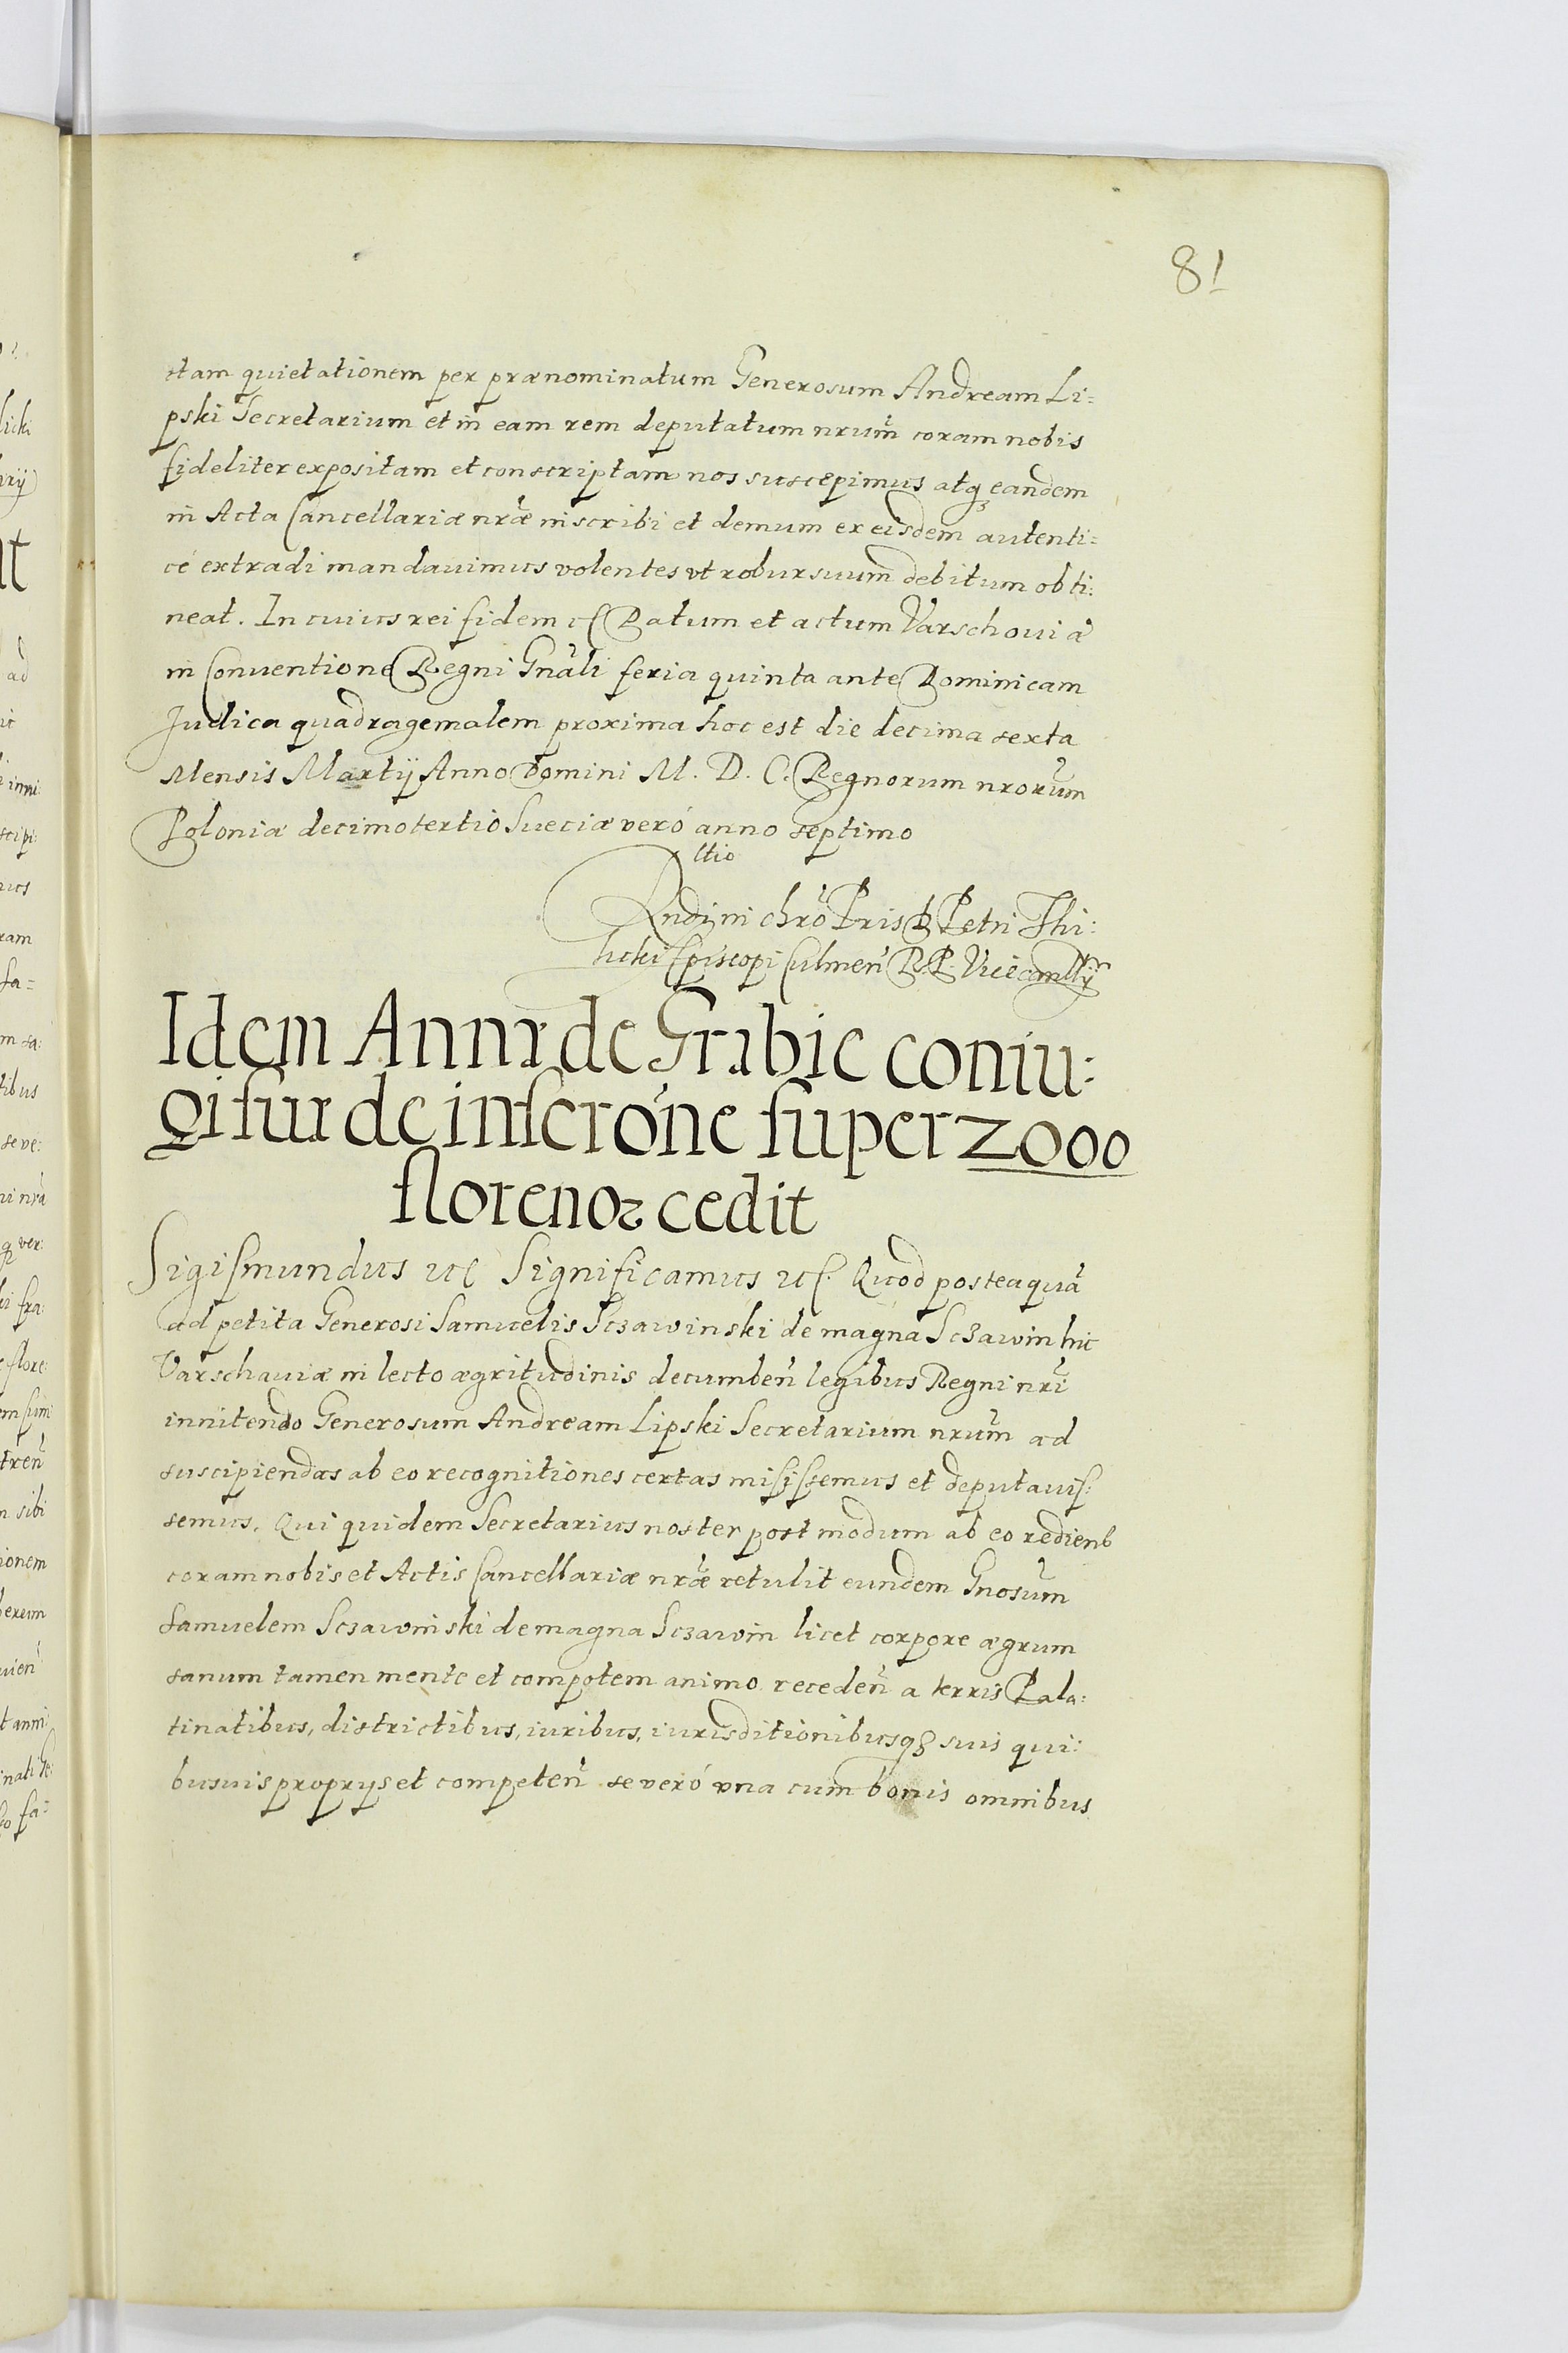 81
ctam quietationem per prænominatum Generosum Andream Li=
pski Secretarium et in eam rem deputatum nrum̃ coram nobis
fideliter expositam et conscriptam nos suscepimus atq₃ eandem
in Acta Cancellariæ nræ̃ inscribi et demum ex eisdem autenti=
cé extradi mandauimus volentes vt robur suum debitum obti:
neat. In cuius rei fidem etc Datum et actum Varschouiæ
in Conuentione Regni Gnãli feria quinta ante Dominicam
Judica quadragemalem proxima hoc est die decima sexta
Mensis Martij Anno Domini M. D. C. Regnorum nrorum̃
Poloniæ decimotertio Sueciæ veró anno septimo
Rltio
Rndi in chrõ Pris D Petri Thi:
licki Episcopi Culmeñ R. P. Vicecancllrij
Idem Annæ de Grabie coniu:
gi suæ de inscrõne super 2000
florenoꝝ cedit
Sigismundus etc Significamus etc. Quod posteaquã
ad petita Generosi Samuelis Sczawinski de magna Sczawin hic
Varschauiæ in lecto ægritudinis decumbeñ legibus Regni nrĩ
innitendo Generosum Andream Lipski Secretarium nrum̃ ad
suscipiendas ab eo recognitiones certas misissemus et deputauis:
semus. Qui quidem Secretarius noster postmodum ab eo rediens
coram nobis et Actis Cancellariæ nræ̃ retulit eundem Gnosum̃
Samuelem Sczawinski de magna Sczawin licet corpore ægrum
sanum tamen mente et compotem animo recedeñ a terris Pala:
tinatibus, districtibus, iuribus, iurisditionibusq₃ suis qui:
busuis proprijs et competeñ se veró vna cum bonis omnibus